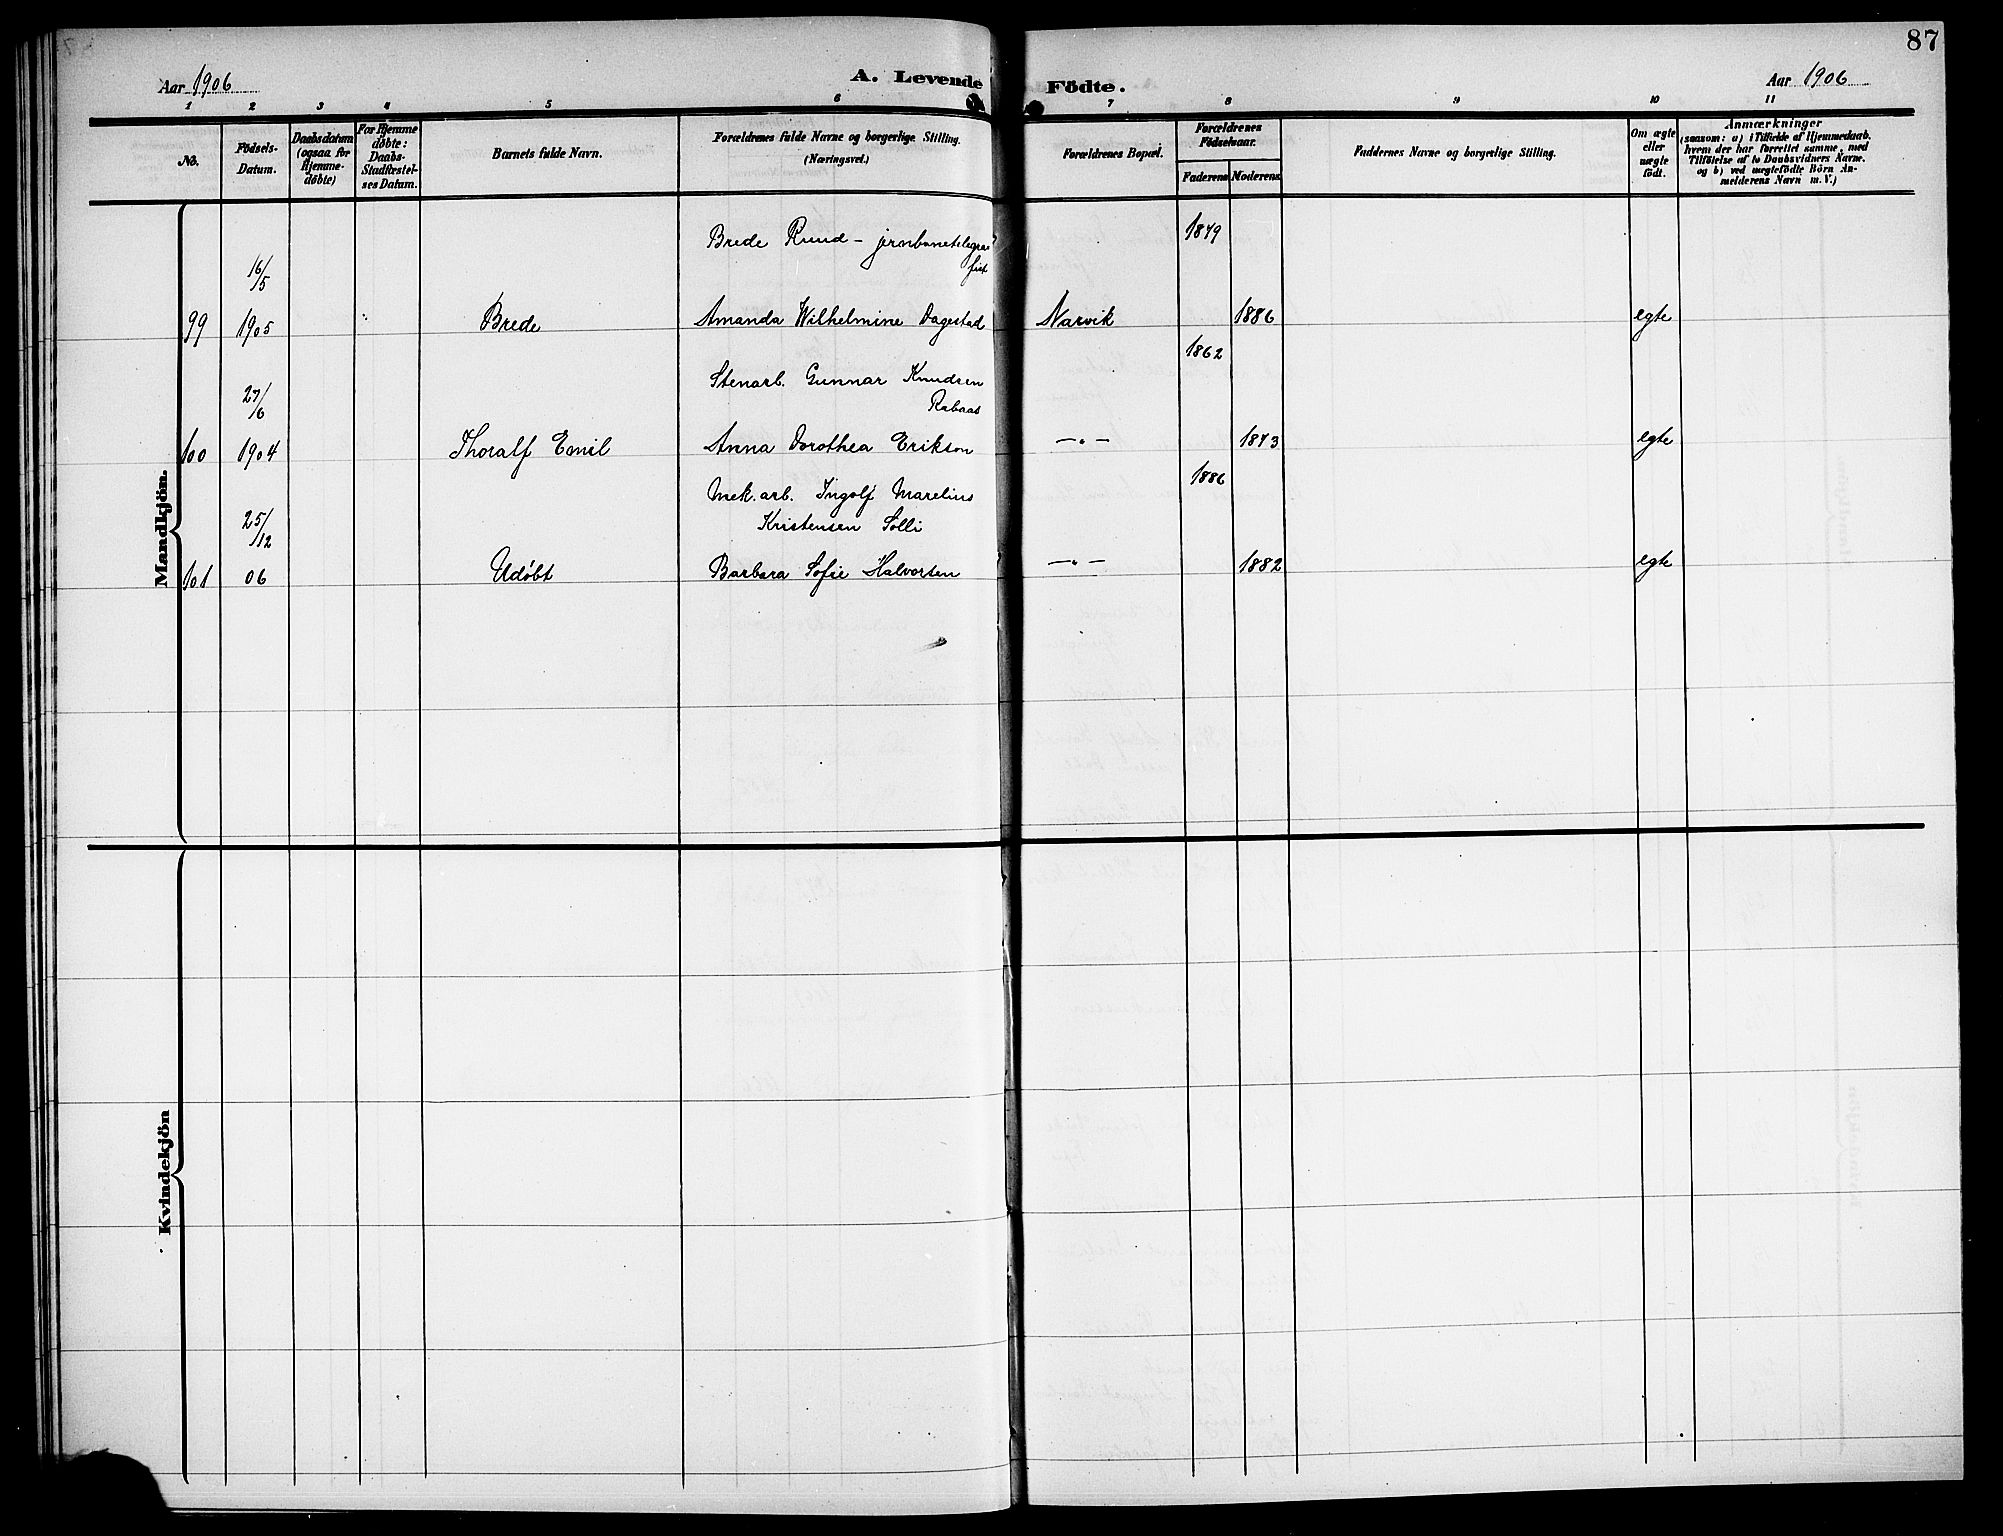 87
Aar 1906
A. Levende Födte.
Aar 1906
1 2 3 4 5 6 7 8 9 10 11
No.
Födsels-
Datum.
Daabsdatum
(ogsaa for
Hjemme-
döbte)
For Hjemme
döbte:
Daabs-
Stadfæstel-
ses Datum.
Barnets fulde Navn.
Forældrenes fulde Navne og borgerlige Stilling.
(Næringsvei.)
Forældrenes Bopæl.
Forældrenes
Födselsaar.
Faderens Moderens
Faddernes Navne og borgerlige Stilling.
Om ægte
eller
uægte
födt.
Anmærkninger
(saasom: a) i Tilfælde af Hjemmedaab,
hvem der har forrettet samme, med
Tilföielse af to Daabsvidners Navne.
og b) ved uægtefödte Börn An-
melderens Navn m. V.)
Mandkjön.
Brede Ruud – jernbanetelegra-
fist
1879
16/5
99 1905 Brede Amanda Wilhelmine Dagestad Narvik 1886 egte
1862
Stenarb. Gunnar Knudsen
Rabaas
27/6
100 1904 Thoralf Emil Anna Dorothea Erikson —„— 1873 egte
1886
Mek. arb. Ingolf Marelius
Kristensen Solli
25/12
101 06 Udøbt Barbara Sofie Halvorsen —„— 1882 egte
Kvindekjön